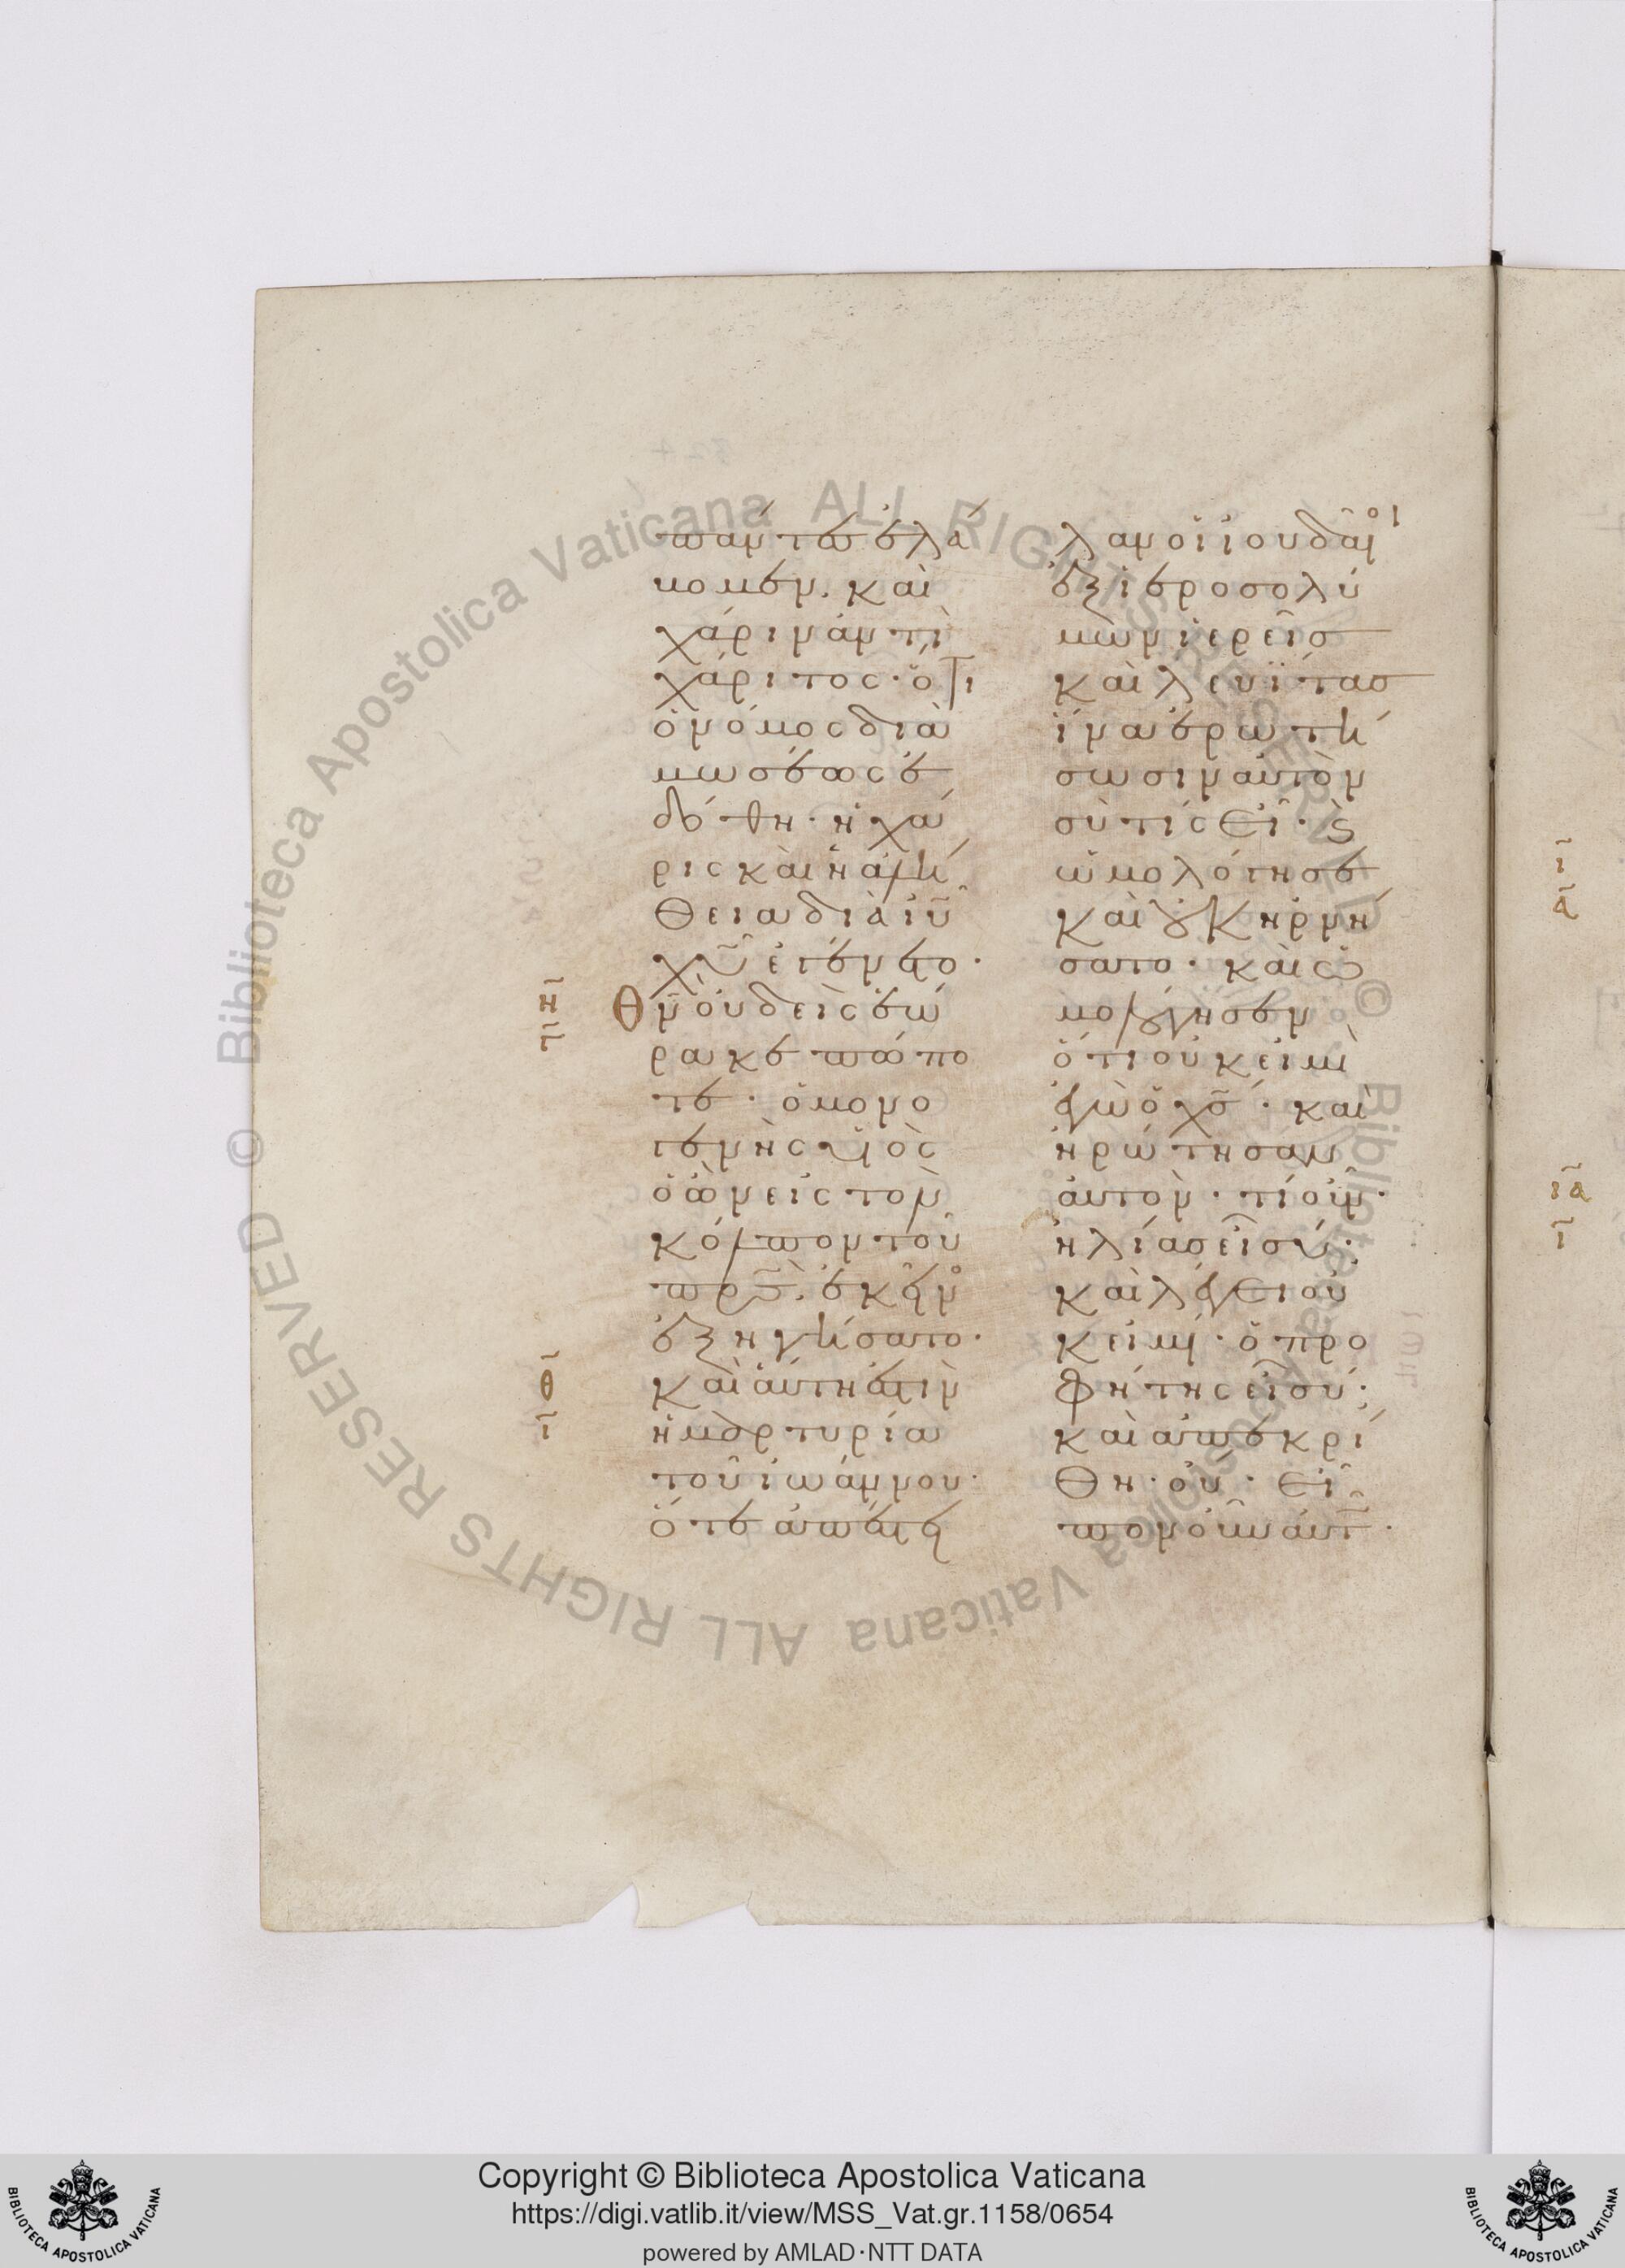 πάντες ἐλά
βομεν. καὶ
χάριν ἀντὶ
χάριτος· ὅτι
ὁ νόμος διὰ
μωσέως ἐ
δόθη· ἡ χά
ρις καὶ ἡ ἀλή
θεια διὰ ἰῦ
χῦ ἐγένετο·
η
γ
Θν οὐδεὶς ἑώ
ρακε πώπο
τε· ὁ μονο
γενὴς υἱὸς
ὁ ὢν εἰς τὸν
κόλπον τοῦ
πρς. ἐκεῖνο
ἐξηγήσατο·
θ
ι
καὶ αὕτη ἐστὶν
ἡ μαρτυρία
τοῦ ἰωάννου·
ὅτε ἀπέστει
λαν οἱ ἰουδαῖοι
ἐξ ἱεροσολύ
μων ἱερεῖς
καὶ λευΐτας
ἵνα ἐρωτή
σωσιν αὐτὸν
σὺ τίς εἶ· καὶ
ὡμολόγησε
καὶ οὐκ ἠρνή
σατο· καὶ ὡ
μολόγησεν
ὅτι οὐκ εἰμὶ
ἐγὼ ὁ χς· καὶ
ἠρώτησαν
αὐτὸν· τί οὖν·
ἠλίας εἶ σύ·
καὶ λέγει οὐ
κ εἰμί· ὁ προ
φήτης εἶ σύ;
καὶ ἀπεκρί
θη· οὔ· εἶ
πον οὖν αὐτῷ·
ι
α
ια
ι
Copyright © Biblioteca Apostolica Vaticana
https://digi.vatlib.it/view/MSS_Vat.gr.1158/0654
powered by AMLAD·NTT DATA
BIBLIOTECA APOSTOLICA VATICANA
BIBLIOTECA APOSTOLICA VATICANA
© Biblioteca Apostolica Vaticana ALL RIGHTS RESERVED
© Biblioteca Apostolica Vaticana ALL RIGHTS RESERVED